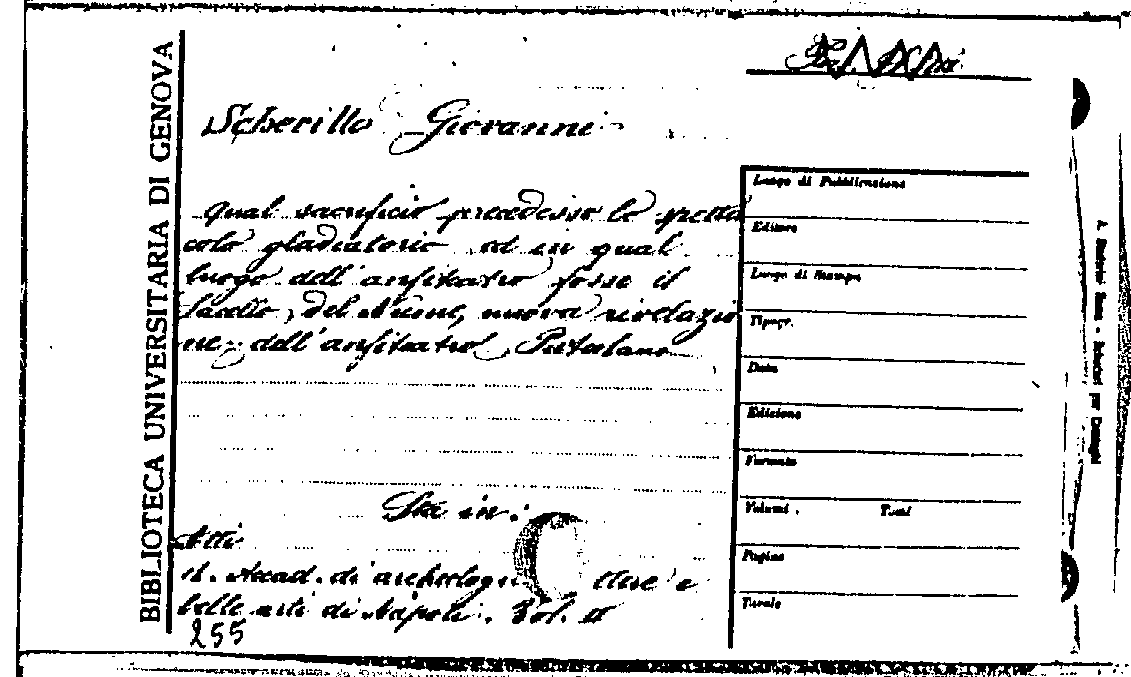 BIBLIOTECA UNIVERSITARIA DI GENOVA
Scherillo Giovanni
Qual sacrificio precedesse lo spetta
colo gladiatorio ed in qual
luogo dell'anfiteatro fosse il
Sacello del Nume, nuova rivelazio
ne dell'anfiteatro Puteolano
Sta in:
Atti
R. Accad. di archeolog lettere e
belle arti di Napoli. Vol. II
255
Luogo di Pubblicazione
Editore
Luogo di Stampa
Tipogr.
Data
Edizione
Formato
Volumi . Tomi
Pagine
Tavole